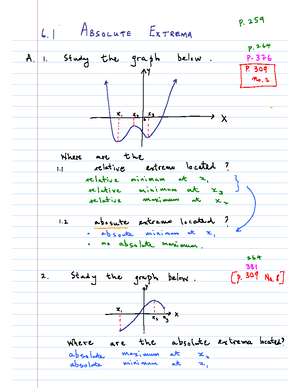 P. 259
6.1 ABSOLUTE EXTREMA
P. 264
P. 376
P. 309
No. 2
A. 1. Study the graph below.
y
x₁ x₂ x₃ x
Where are the
1.1 relative extrema located?
relative minimum at x₁
relative minimum at x₃
relative maximum at x₂
1.2 absoute extrema located?
• absoute minimum at x₁
• no absolute maximum.
264
381
2. Study the graph below. [P. 309 No. 8]
y
x₁ x₂ x₃ x
Where are the absolute extrema located?
absolute maximum at x₂
absolute minimum at x₁